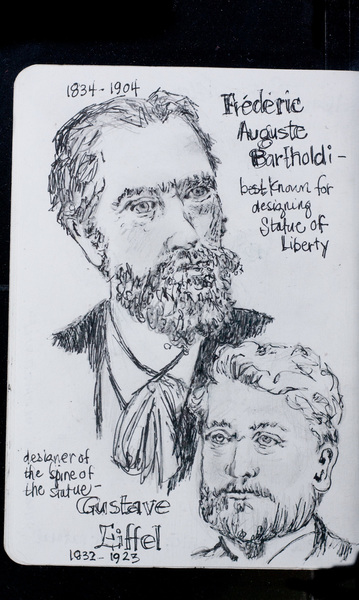 1834-1904
Frédéric
Auguste
Bartholdi-
best known for
designing
Statue of
Liberty
designer of
the spine of
the statue-
Gustave
Eiffel
1832-1923